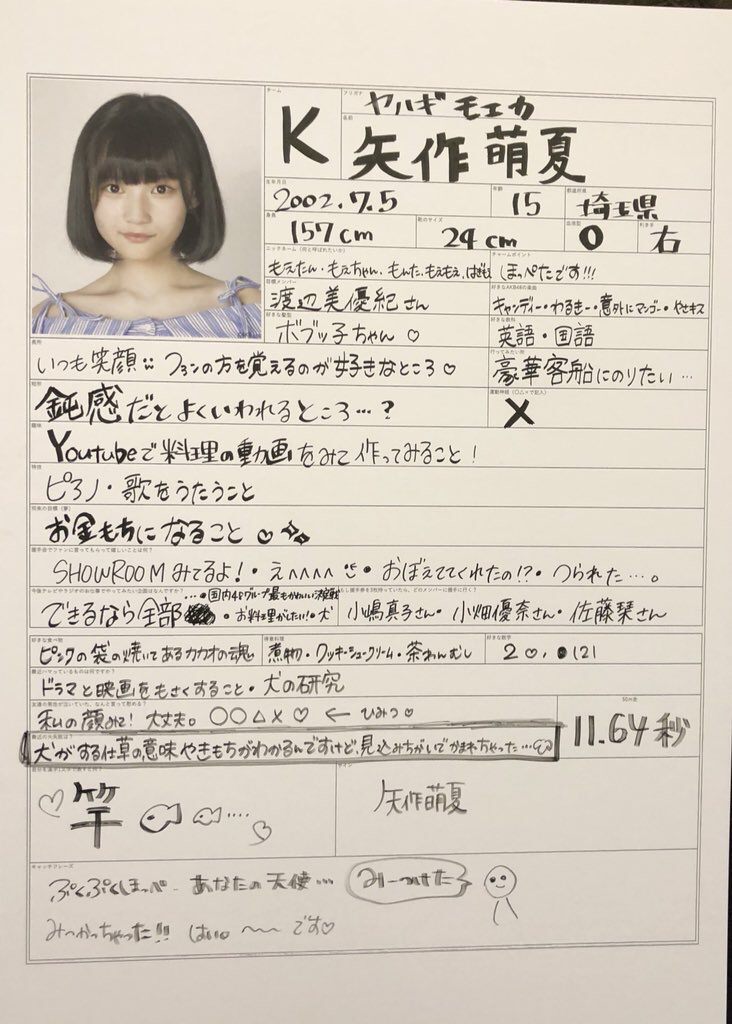 チーム
K
フリガナ
ヤハギ モエカ
名前
矢作 萌夏
生年月日
2002.7.5
年齢
15
都道府県
埼玉県
身長
157cm
靴のサイズ
24cm
血液型
O
利き手
右
ニックネーム(何と呼ばれたいか)
もえたん・もえちゃん・もんた・もえもえ、はぎもえ
チャームポイント
ほっぺたです!!!
目標メンバー
渡辺美優紀さん
好きなAKB48の楽曲
キャンディー・わるきー・意外にマンゴー・やさキス
好きな髪型
ボブッ子ちゃん♡
好きな教科
英語・国語
長所
いつも笑顔 ファンの方を覚えるのが好きなところ♡
行ってみたい所
豪華客船にのりたい…
短所
鈍感だとよくいわれるところ…?
運動神経(○△×で記入)
×
趣味
Youtubeで料理の動画をみて作ってみること!
特技
ピアノ・歌をうたうこと
将来の目標(夢)
お金もちになること♡
握手会でファンに言ってもらって嬉しいことは何?
SHOWROOMみてるよ!・えへへへへ・おぼえててくれたの!?・つられた…。
今後テレビやラジオのお仕事でやってみたい企画はなんですか?
…・国内48グループ最もかわいい決定戦
できるなら全部 ・お料理がしたい!・犬
もし握手券を3枚持っていたら、どのメンバーに握手に行く?
小嶋真子さん・小畑優奈さん・佐藤栞さん
好きな食べ物
ピンクの袋の焼いてあるカカオの魂
得意料理
煮物・クッキーシュークリーム・茶わんむし
好きな数字
2♡, 121
最近ハマっているものは何ですか?
ドラマと映画をもさくすること・犬の研究
友達の男性が泣いていた、なんと言って慰める?
私の顔みて!大丈夫。○○△×♡ ← ひみつ♡
50m走
11.64秒
最近の大失敗は?
犬がする仕草の意味やきもちがわかるんですけど、見込みちがいでかまれちゃった…
自分を漢字1文字で表すと何?
♡竿 ‥‥
サイン
矢作萌夏
キャッチフレーズ
ぷくぷくほっぺ… あなたの天使… みーつけた
みつかっちゃった!! はい。〜〜 です♡